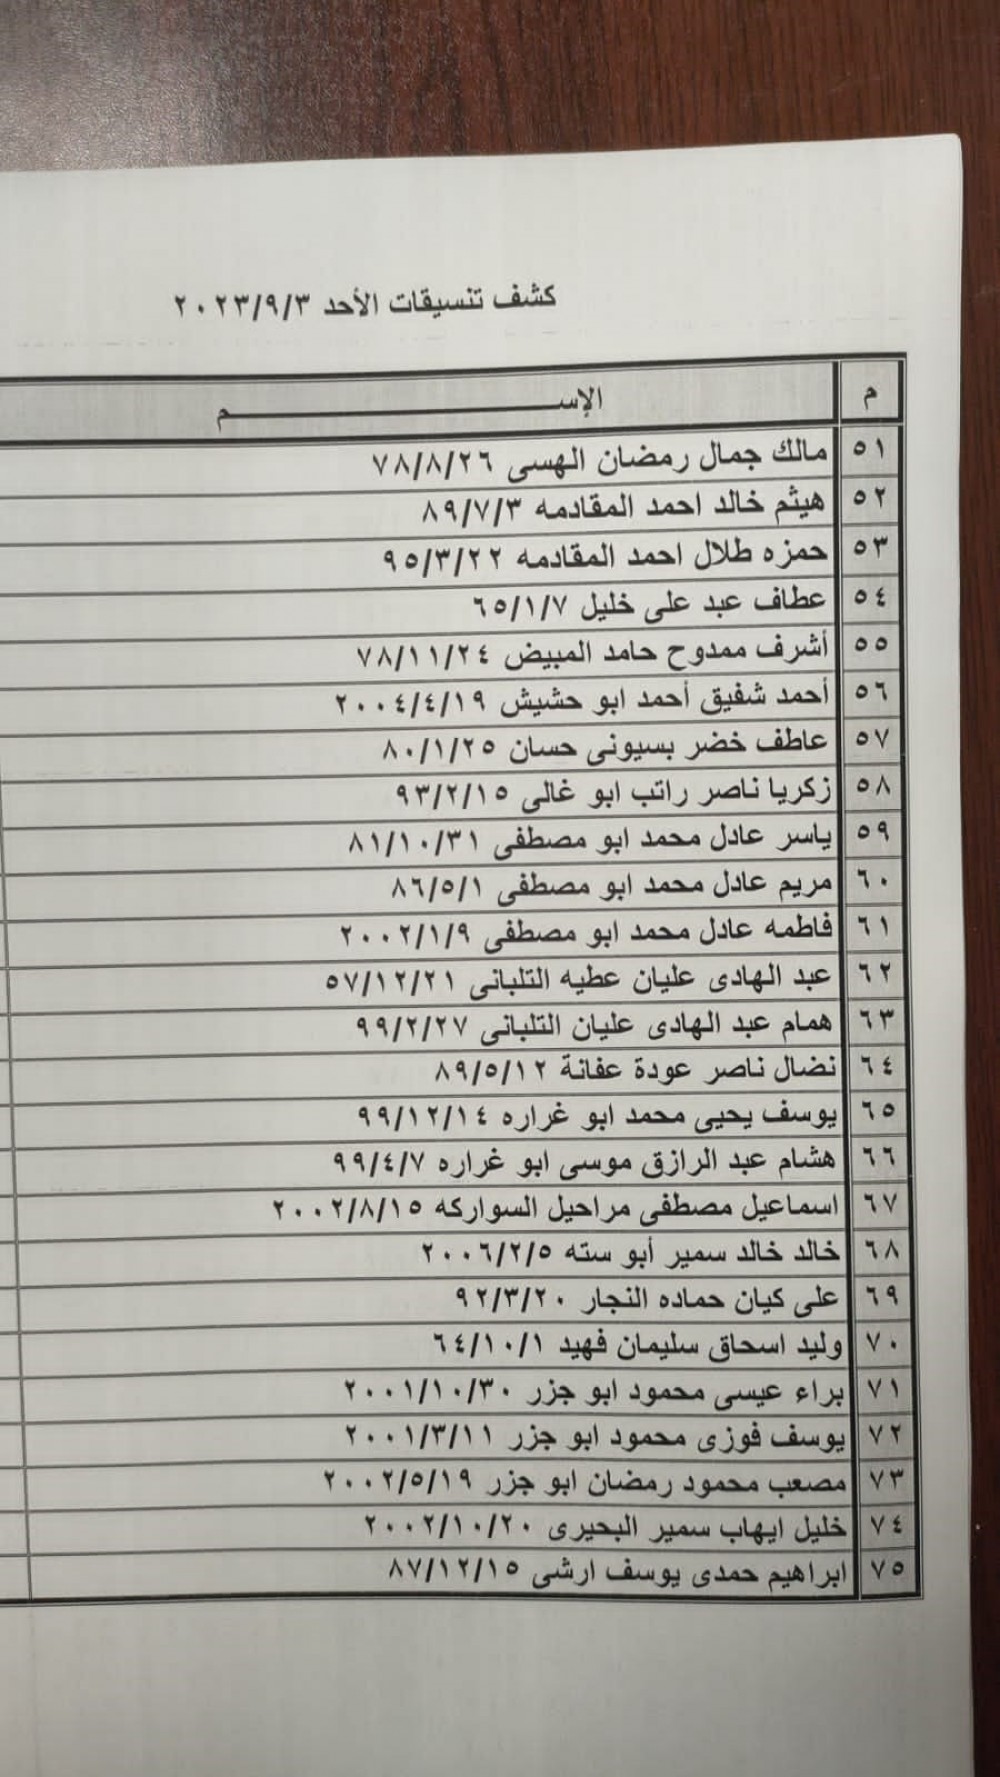 كشف تنسيقات الأحد ٢٠٢٣/٩/٣
م الإســـــــــــــــــــم
٥١ مالك جمال رمضان الهسى ٧٨/٨/٢٦
٥٢ هيثم خالد احمد المقادمه ٨٩/٧/٣
٥٣ حمزه طلال احمد المقادمه ٩٥/٣/٢٢
٥٤ عطاف عبد على خليل ٦٥/١/٧
٥٥ أشرف ممدوح حامد المبيض ٧٨/١١/٢٤
٥٦ أحمد شفيق أحمد ابو حشيش ٢٠٠٤/٤/١٩
٥٧ عاطف خضر بسيونى حسان ٨٠/١/٢٥
٥٨ زكريا ناصر راتب ابو غالى ٩٣/٢/١٥
٥٩ ياسر عادل محمد ابو مصطفى ٨١/١٠/٣١
٦٠ مريم عادل محمد ابو مصطفى ٨٦/٥/١
٦١ فاطمه عادل محمد ابو مصطفى ٢٠٠٢/١/٩
٦٢ عبد الهادى عليان عطيه التلبانى ٥٧/١٢/٢١
٦٣ همام عبد الهادى عليان التلبانى ٩٩/٢/٢٧
٦٤ نضال ناصر عودة عفانة ٨٩/٥/١٢
٦٥ يوسف يحيى محمد ابو غراره ٩٩/١٢/١٤
٦٦ هشام عبد الرازق موسى ابو غراره ٩٩/٤/٧
٦٧ اسماعيل مصطفى مراحيل السواركه ٢٠٠٢/٨/١٥
٦٨ خالد خالد سمير أبو سته ٢٠٠٦/٢/٥
٦٩ على كيان حماده النجار ٩٢/٣/٢٠
٧٠ وليد اسحاق سليمان فهيد ٦٤/١٠/١
٧١ براء عيسى محمود ابو جزر ٢٠٠١/١٠/٣٠
٧٢ يوسف فوزى محمود ابو جزر ٢٠٠١/٣/١١
٧٣ مصعب محمود رمضان ابو جزر ٢٠٠٢/٥/١٩
٧٤ خليل ايهاب سمير البحيرى ٢٠٠٢/١٠/٢٠
٧٥ ابراهيم حمدى يوسف ارشى ٨٧/١٢/١٥